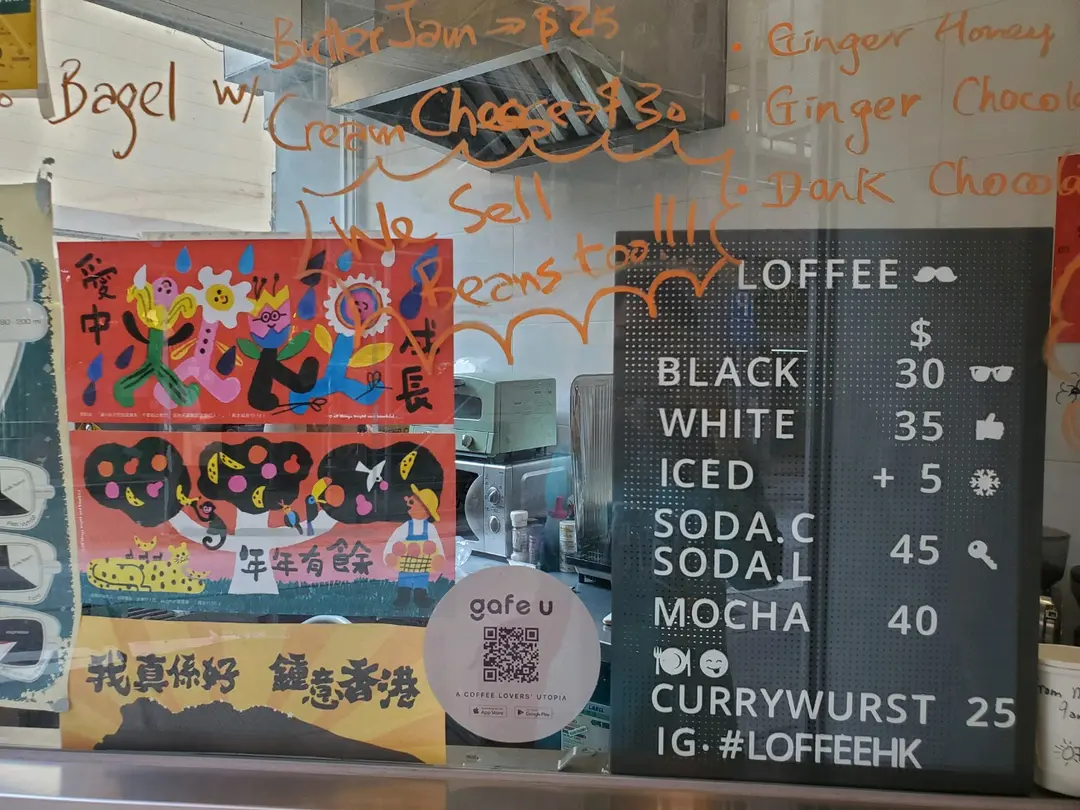 Butter Jam → $25
Bagel w/
Cream Cheese → $30
We Sell
Beans too!!!
• Ginger Honey
• Ginger Chocola
• Dark Chocola
愛中
成長
年年有餘
我真係好 鍾意香港
gafe U
A COFFEE LOVERS' UTOPIA
App Store
Google Play
LOFFEE
$
BLACK 30
WHITE 35
ICED + 5
SODA.C
SODA.L 45
MOCHA 40
CURRYWURST 25
IG·#LOFFEEHK